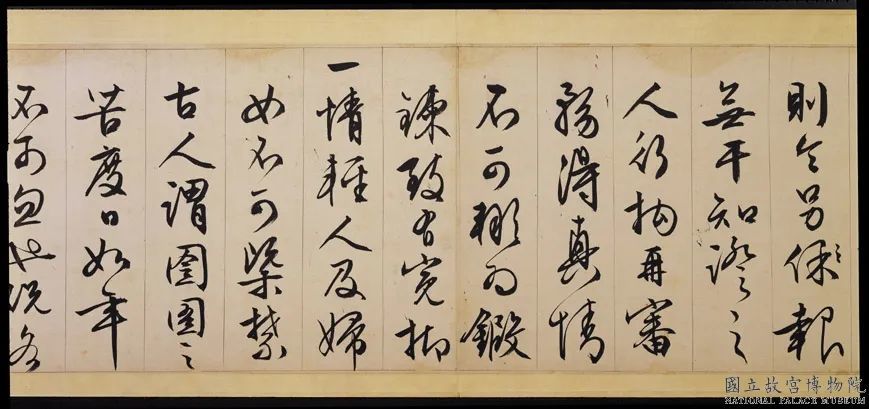 則令召保報
無干知證之
人行拘再審
務得真情
不可輒為鍛
鍊致有冤抑
一情輕人及婦
女不可槩禁
古人謂囹圄之
苦度日如年
不可忽也況各
國立故宮博物院
NATIONAL PALACE MUSEUM